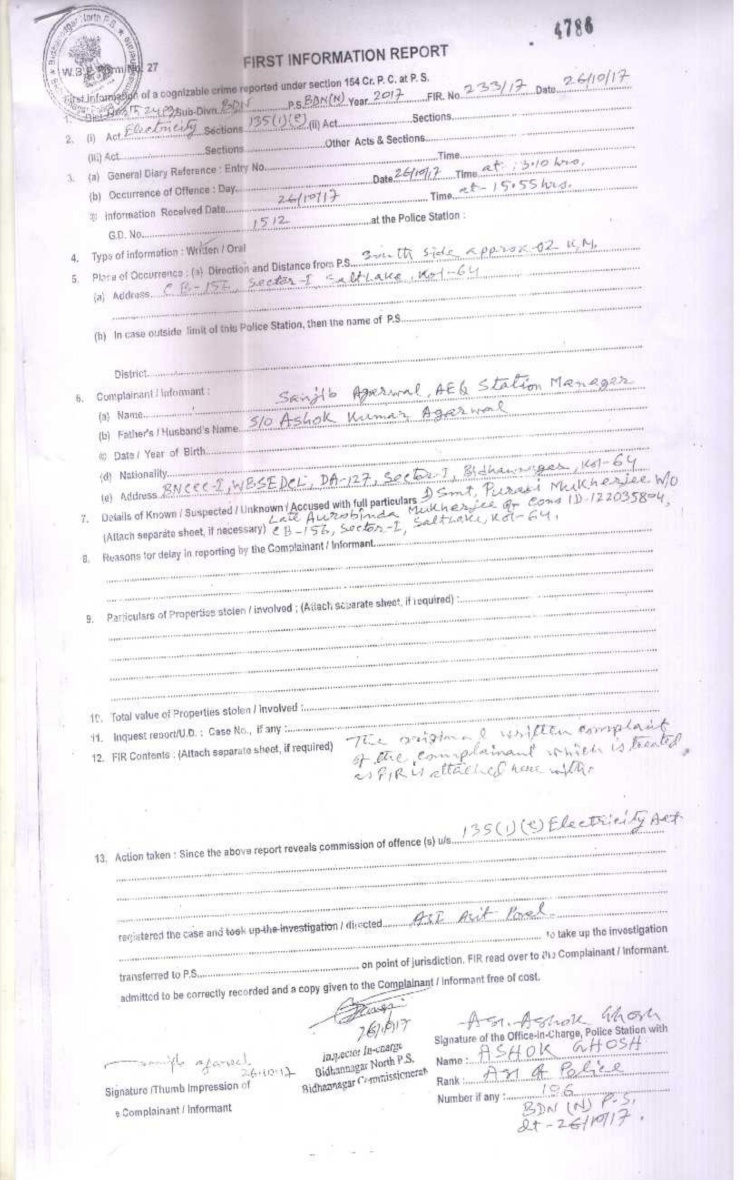 4786
Bidhannagar North P.S.
W.B.P. Form No. 27
FIRST INFORMATION REPORT
First Information of a cognizable crime reported under section 154 Cr. P. C. at P. S.
1. Dist. 24 Pgs Sub-Divn. BDN P.S. BDN(N) Year 2017 FIR. No. 233/17 Date 26/10/17
2. (i) Act Electricity Sections 135(1)(e) (ii) Act Sections
(iii) Act Sections Other Acts & Sections
3. (a) General Diary Reference : Entry No. Time
(b) Occurrence of Offence : Day Date 26/10/17 Time at :3.10 hrs.
© Information Received Date 26/10/17 Time at - 15.55 hrs.
G.D. No. 1512 at the Police Station :
4. Type of information : Written / Oral
5. Place of Occurrence : (a) Direction and Distance from P.S. South side approx-02 K.M.
(a) Address CB-156, Sector-I, SaltLake, Kol-64
(b) In case outside limit of this Police Station, then the name of P.S.
District
6. Complainant / Informant :
(a) Name Sanjib Agarwal, AE & Station Manager
(b) Father's / Husband's Name S/O Ashok Kumar Agarwal
© Date / Year of Birth
(d) Nationality
(e) Address BNCCC-I, WBSEDCL, DA-127, Sector-I, Bidhannagar, Kol-64
7. Details of Known / Suspected / Unknown / Accused with full particulars 1) Smt, Puravi Mukherjee W/O
Late Aurobinda Mukherjee of Cons ID-122035804,
(Attach separate sheet, if necessary) CB-156, Sector-I, SaltLake, Kol-64.
8. Reasons for delay in reporting by the Complainant / Informant
9. Particulars of Properties stolen / involved ; (Attach separate sheet, if required) :
10. Total value of Properties stolen / involved :
11. Inquest report/U.D. : Case No., if any :
12. FIR Contents : (Attach separate sheet, if required) The original written complaint
of the complainant which is treated
as FIR is attached here with.
13. Action taken : Since the above report reveals commission of offence (s) u/s. 135(1)(e) Electricity Act
registered the case and took up the investigation / directed ASI Asit
to take up the investigation
transferred to P.S. on point of jurisdiction. FIR read over to the Complainant / Informant.
admitted to be correctly recorded and a copy given to the Complainant / Informant free of cost.
26/10/17
Inspector In-charge
Bidhannagar North P.S.
Bidhannagar Commissionerate
Sanjib Agarwal
26.10.17
Signature /Thumb Impression of
e Complainant / Informant
ASI. Ashok Ghosh
Signature of the Office-in-Charge, Police Station with
Name : ASHOK GHOSH
Rank : ASI of Police
Number if any : 186
BDN (N) P.S.
dt - 26/10/17.